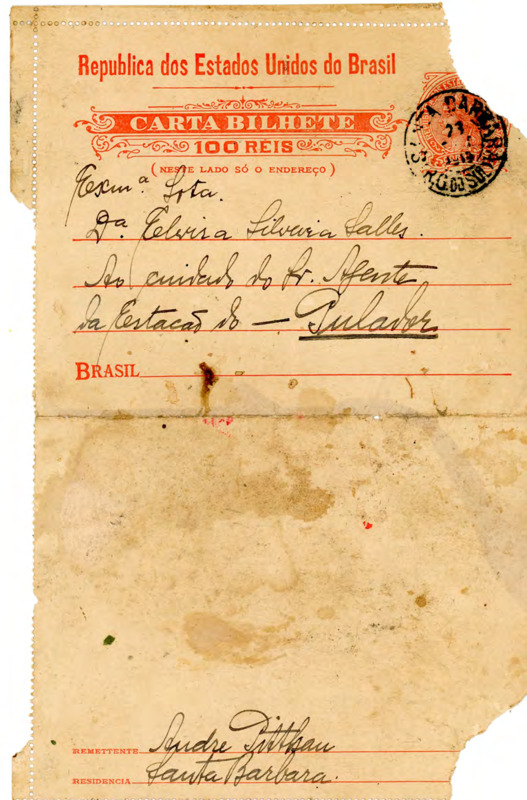 Republica dos Estados Unidos do Brasil
CARTA BILHETE
100 RÉIS
(NESTE LADO SÓ O ENDEREÇO)
SANTA BARBARA
23
R.G. DO SUL
Exmª. Srta.
Dª. Elvira Silveira Salles.
Ao cuidado do Sr. Agente
da Estacão do — Pulador
BRASIL
REMETTENTE Andre Pitthan
RESIDENCIA Santa Barbara.